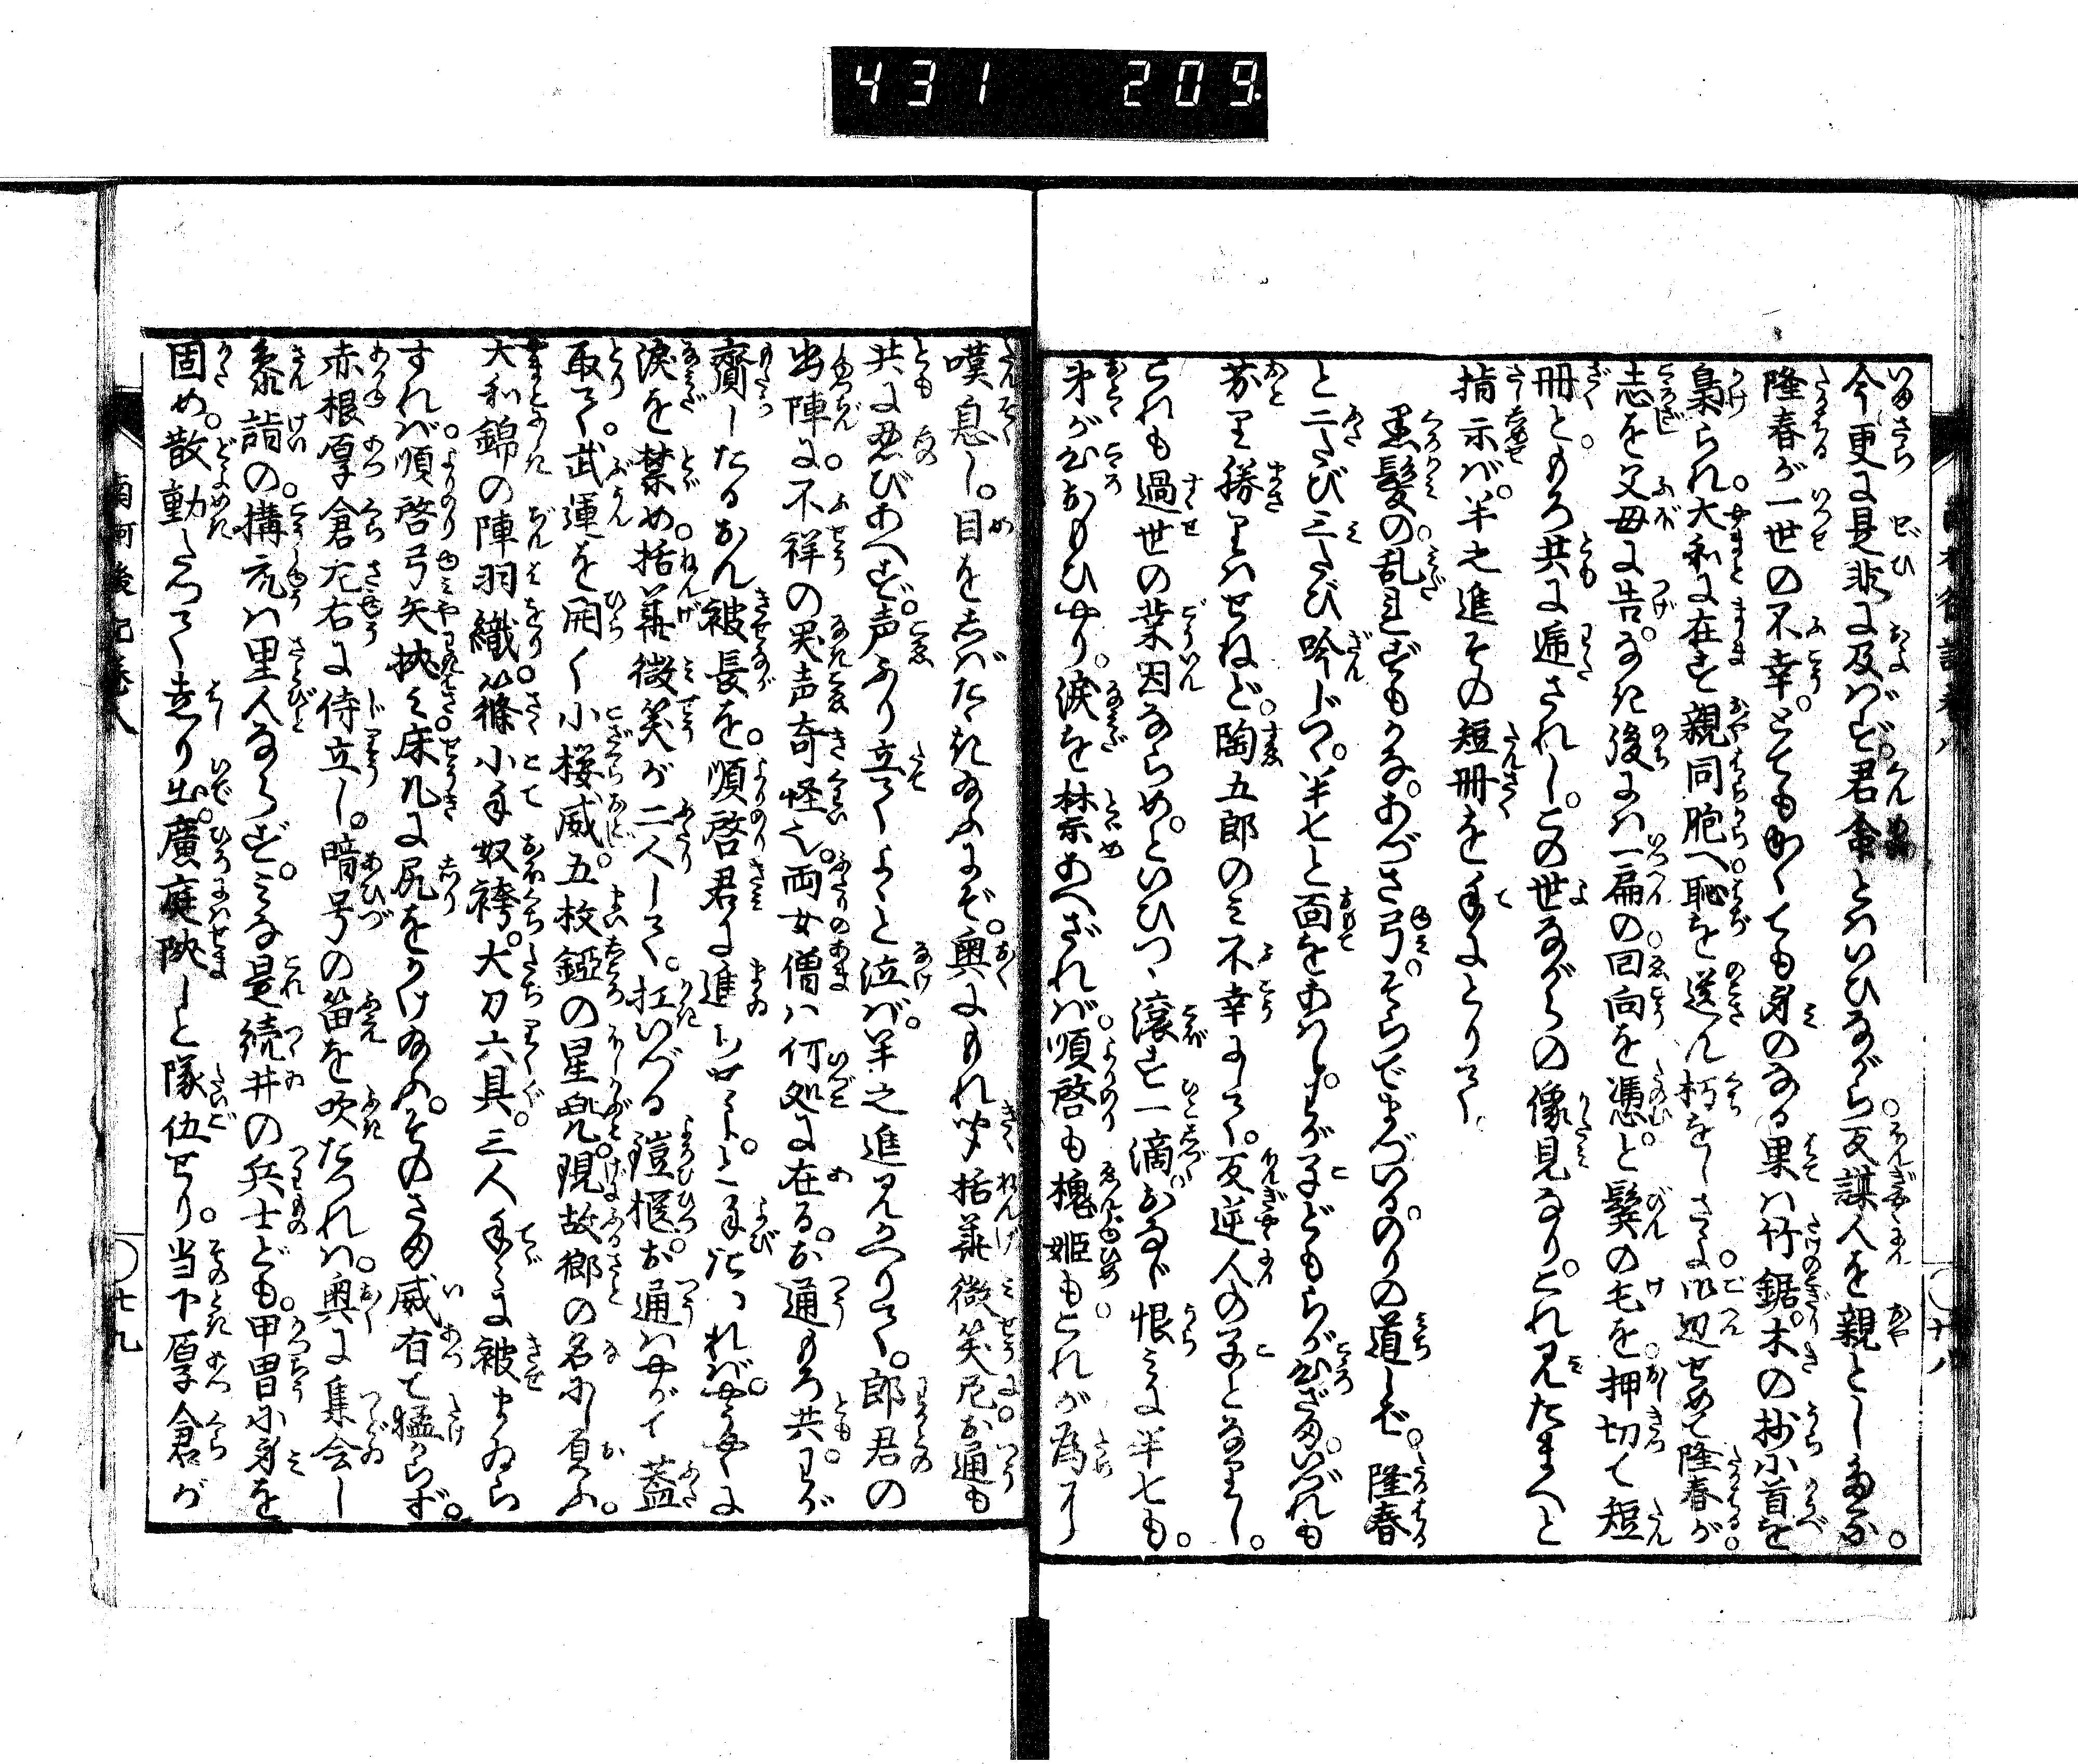 431 209
今更に是非に及ばず。君命とはいひながら。反謀人を親とし給ふ。
隆春が一世の不幸。とても斯ても身のなる果は竹鋸。木の抄に首を
梟られ。大和に在す親同胞へ恥を送ん朽をしさよ。御辺せめて隆春が
志を父母に告。なき後には一扁の回向を憑と。鬢の毛を押切て短
冊と。もろ共に遞されし。この世ながらの像見なり。これ見たまへと
指示ば。半之進その短冊を手にとりて
黒髪の乱れずもがな。あづさ弓。そらでまづいるのりの道しば。隆春
と二たび三たび吟じつゝ。半七と面をあはし。わが子どもらが心ざま。いづれも
劣り勝りはせねど。陶五郎のみ不幸にて。反逆人の子となりし。
これも過世の業因ならめ。といひつゝ滾す一滴。おなじ恨みに半七も。
弟が心おもひやり。涙を禁めあへざれば。順啓も槐姫もこれが為に
嘆息し。目をしばたたき給ふにぞ。奥にもれ聞括華微笑尼。お通も
共に忍びあへず。声ふり立てよゝと泣ば。半之進見かへりて。郎君の
出陣に。不祥の哭声奇怪也。両女僧は何処に在る。お通もろ共。わが
齎したるおん被長を。順啓君に進らせよ。と呼はれば。やうやくに
涙を禁め。括華微笑が二人して。扛いづる鎧櫃。お通はやがて蓋
取て。武運を開く小桜威。五枚錏の星兜。現故郷の名に負ふ。
大和錦の陣羽織。篠小手奴袴。大刀六具。三人手々に被まゐら
すれば。順啓弓矢挟み。床几に尻をかけ給ふ。そのさま威有て猛からず。
赤根厚倉左右に侍立し。暗号の笛を吹たつれは。奥に集会し
参詣の搆売は里人ならず。みな是続井の兵士ども。甲冑に身を
固め。散動たつて走り出。廣庭陜しと隊伍せり。当下厚倉が
七九